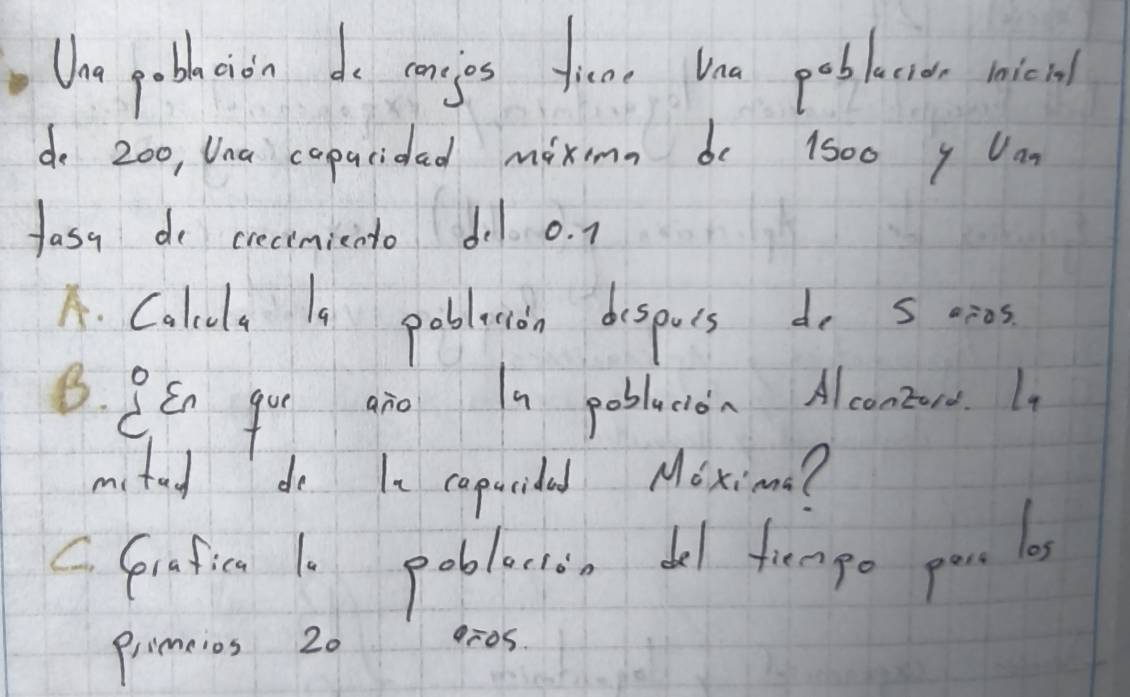 Una población de conejos tiene Una población inicial
de 200, Una capacidad máxima de 1500 y Una
tasa de crecimiento del 0.1
A. Calcula la población después de 5 años.
B. ¿En que año la población Alcanzará la
mitad de la capacidad Máxima?
C. Grafica la población del tiempo para los
primeros 20 años.